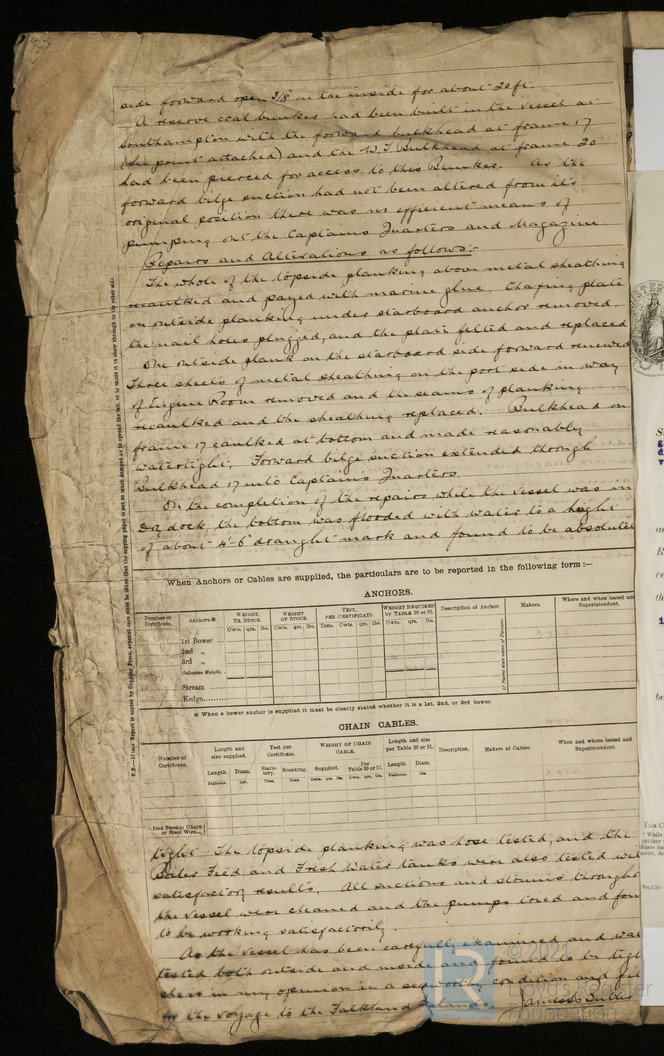 side forward open 3/8 on the inside for about 20ft.
A reserve coal bunker had been built in the vessel at
Southampton with the forward bulkhead at frame 17
(the print attached) and the W.T. Bulkhead at frame 20
had been pierced for access to this Bunker. As the
forward bilge suction had not been altered from it's
original position there was no efficient means of
pumping out the Captains Quarters and Magazine
Repairs and Alterations as follows:-
The whole of the topside planking above metal sheathing
recaulked and payed with marine glue. Chafing plate
on outside planking under starboard anchor removed
the nail holes plugged, and the plate felted and replaced
One outside plank on the starboard side forward renewed
Three sheets of metal sheathing on the port side in way
of Engine Room removed and the seams of planking
recaulked and the sheathing replaced. Bulkhead on
frame 17 caulked at bottom and made reasonably
watertight. Forward bilge suction extended through
Bulkhead 17 into Captain's Quarters.
On the completion of the repairs while the vessel was in
Dry dock, the bottom was flooded with water to a hight
of about 4'-6" draught mark and found to be absolutely
When Anchors or Cables are supplied, the particulars are to be reported in the following form :—
ANCHORS.
Number of Certificate. Anchors※ WEIGHT, EX. STOCK. WEIGHT OF STOCK. TEST, PER CERTIFICATE. WEIGHT REQUIRED by TABLE 30 or 31. Description of Anchor. Makers. Where and when tested and Superintendent.
Cwts. qrs. lbs. Cwts. qrs. lbs. Tons. Cwts. qrs. lbs. Cwts. qrs. lbs.
1st Bower ...
2nd „
3rd „
Collective Weight.
Stream ......
Kedge.........
※ When a bower anchor is supplied it must be clearly stated whether it is a 1st, 2nd, or 3rd bower.
CHAIN CABLES.
Number of Certificate. Length and size supplied. Test per Certificate. WEIGHT OF CHAIN CABLE. Length and size per Table 30 or 31. Description. Makers of Cables. When and where tested and Superintendent.
Length. Diam. Statutory. Breaking. Supplied. Per Table 30 or 31. Length. Diam.
Fathoms. Ins. Tons. Tons Cwts. qrs. lbs. Cwts. qrs. lbs. Fathoms. Ins.
Iron Stream Chain or Steel Wire...
tight. The topside planking was hose tested, and the
Boiler Feed and Fresh Water tanks were also tested with
satisfactory results. All suctions and strums through
the vessel were cleaned and the pumps tried and found
to be working satisfactorily.
As the vessel has been carefully examined and was
tested both outside and inside and found to be tight
she is in my opinion in a seaworthy condition and fit
for the voyage to the Falkland Islands.
© 2021
Lloyd's Register
Foundation